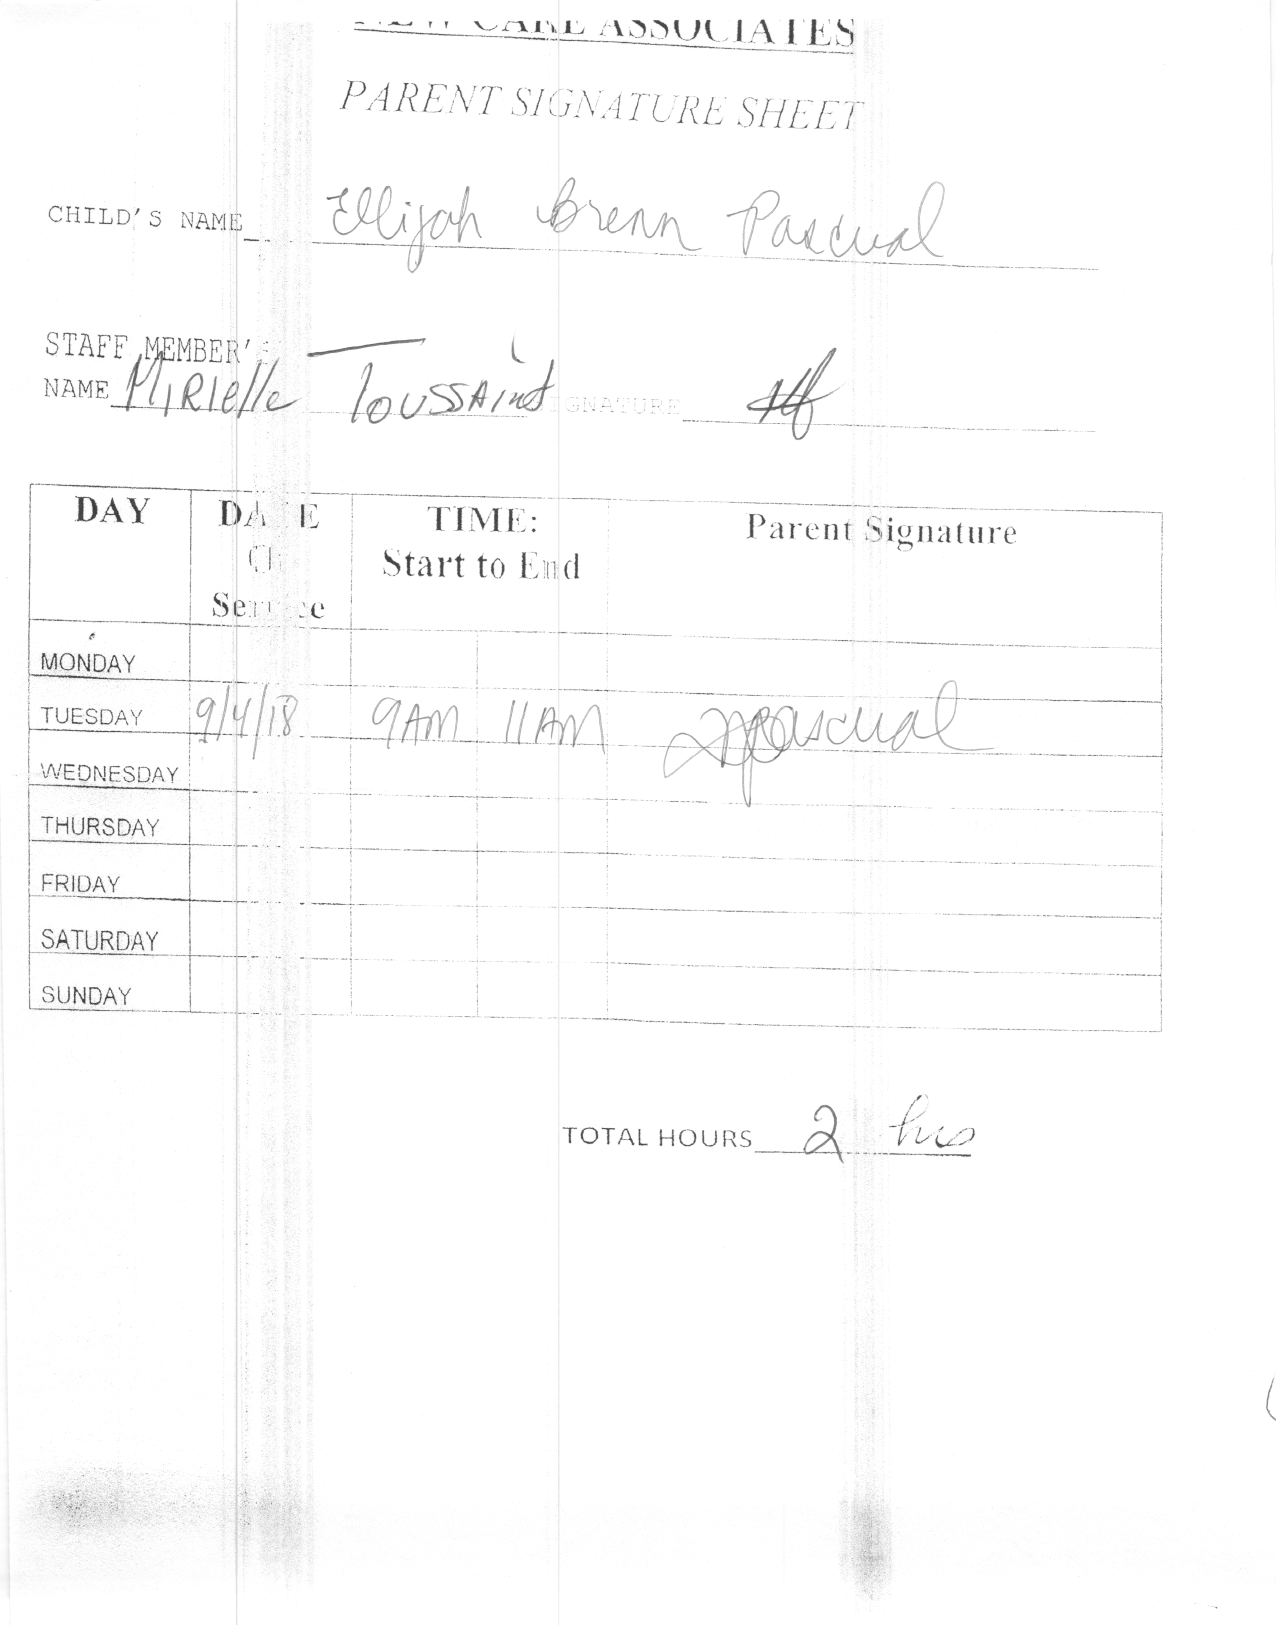 NEW CARE ASSOCIATES
PARENT SIGNATURE SHEET
CHILD'S NAME Ellijah Brenn Pascual
STAFF MEMBER'S
NAME Mirielle Toussaint SIGNATURE
DAY DATE Of Service TIME: Start to End Parent Signature
MONDAY
TUESDAY 9/4/18 9AM 11AM Pascual
WEDNESDAY
THURSDAY
FRIDAY
SATURDAY
SUNDAY
TOTAL HOURS 2 hrs